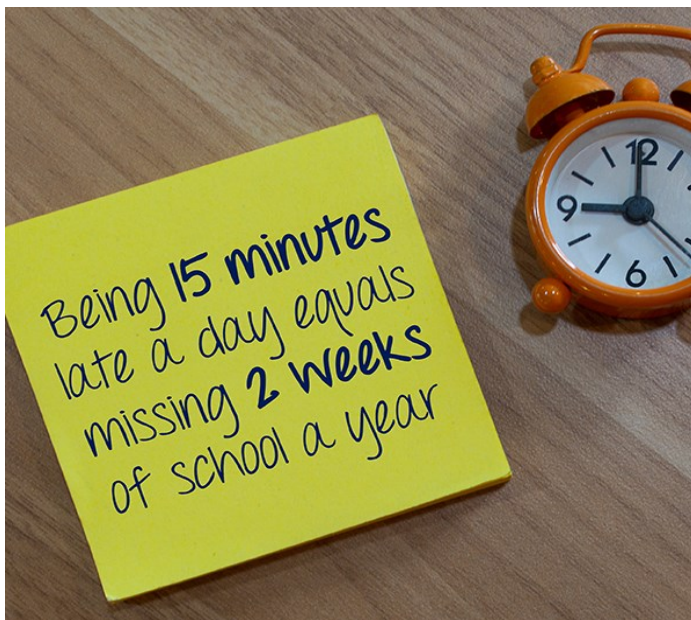 Being 15 minutes
late a day equals
missing 2 weeks
of school a year
12
9
6